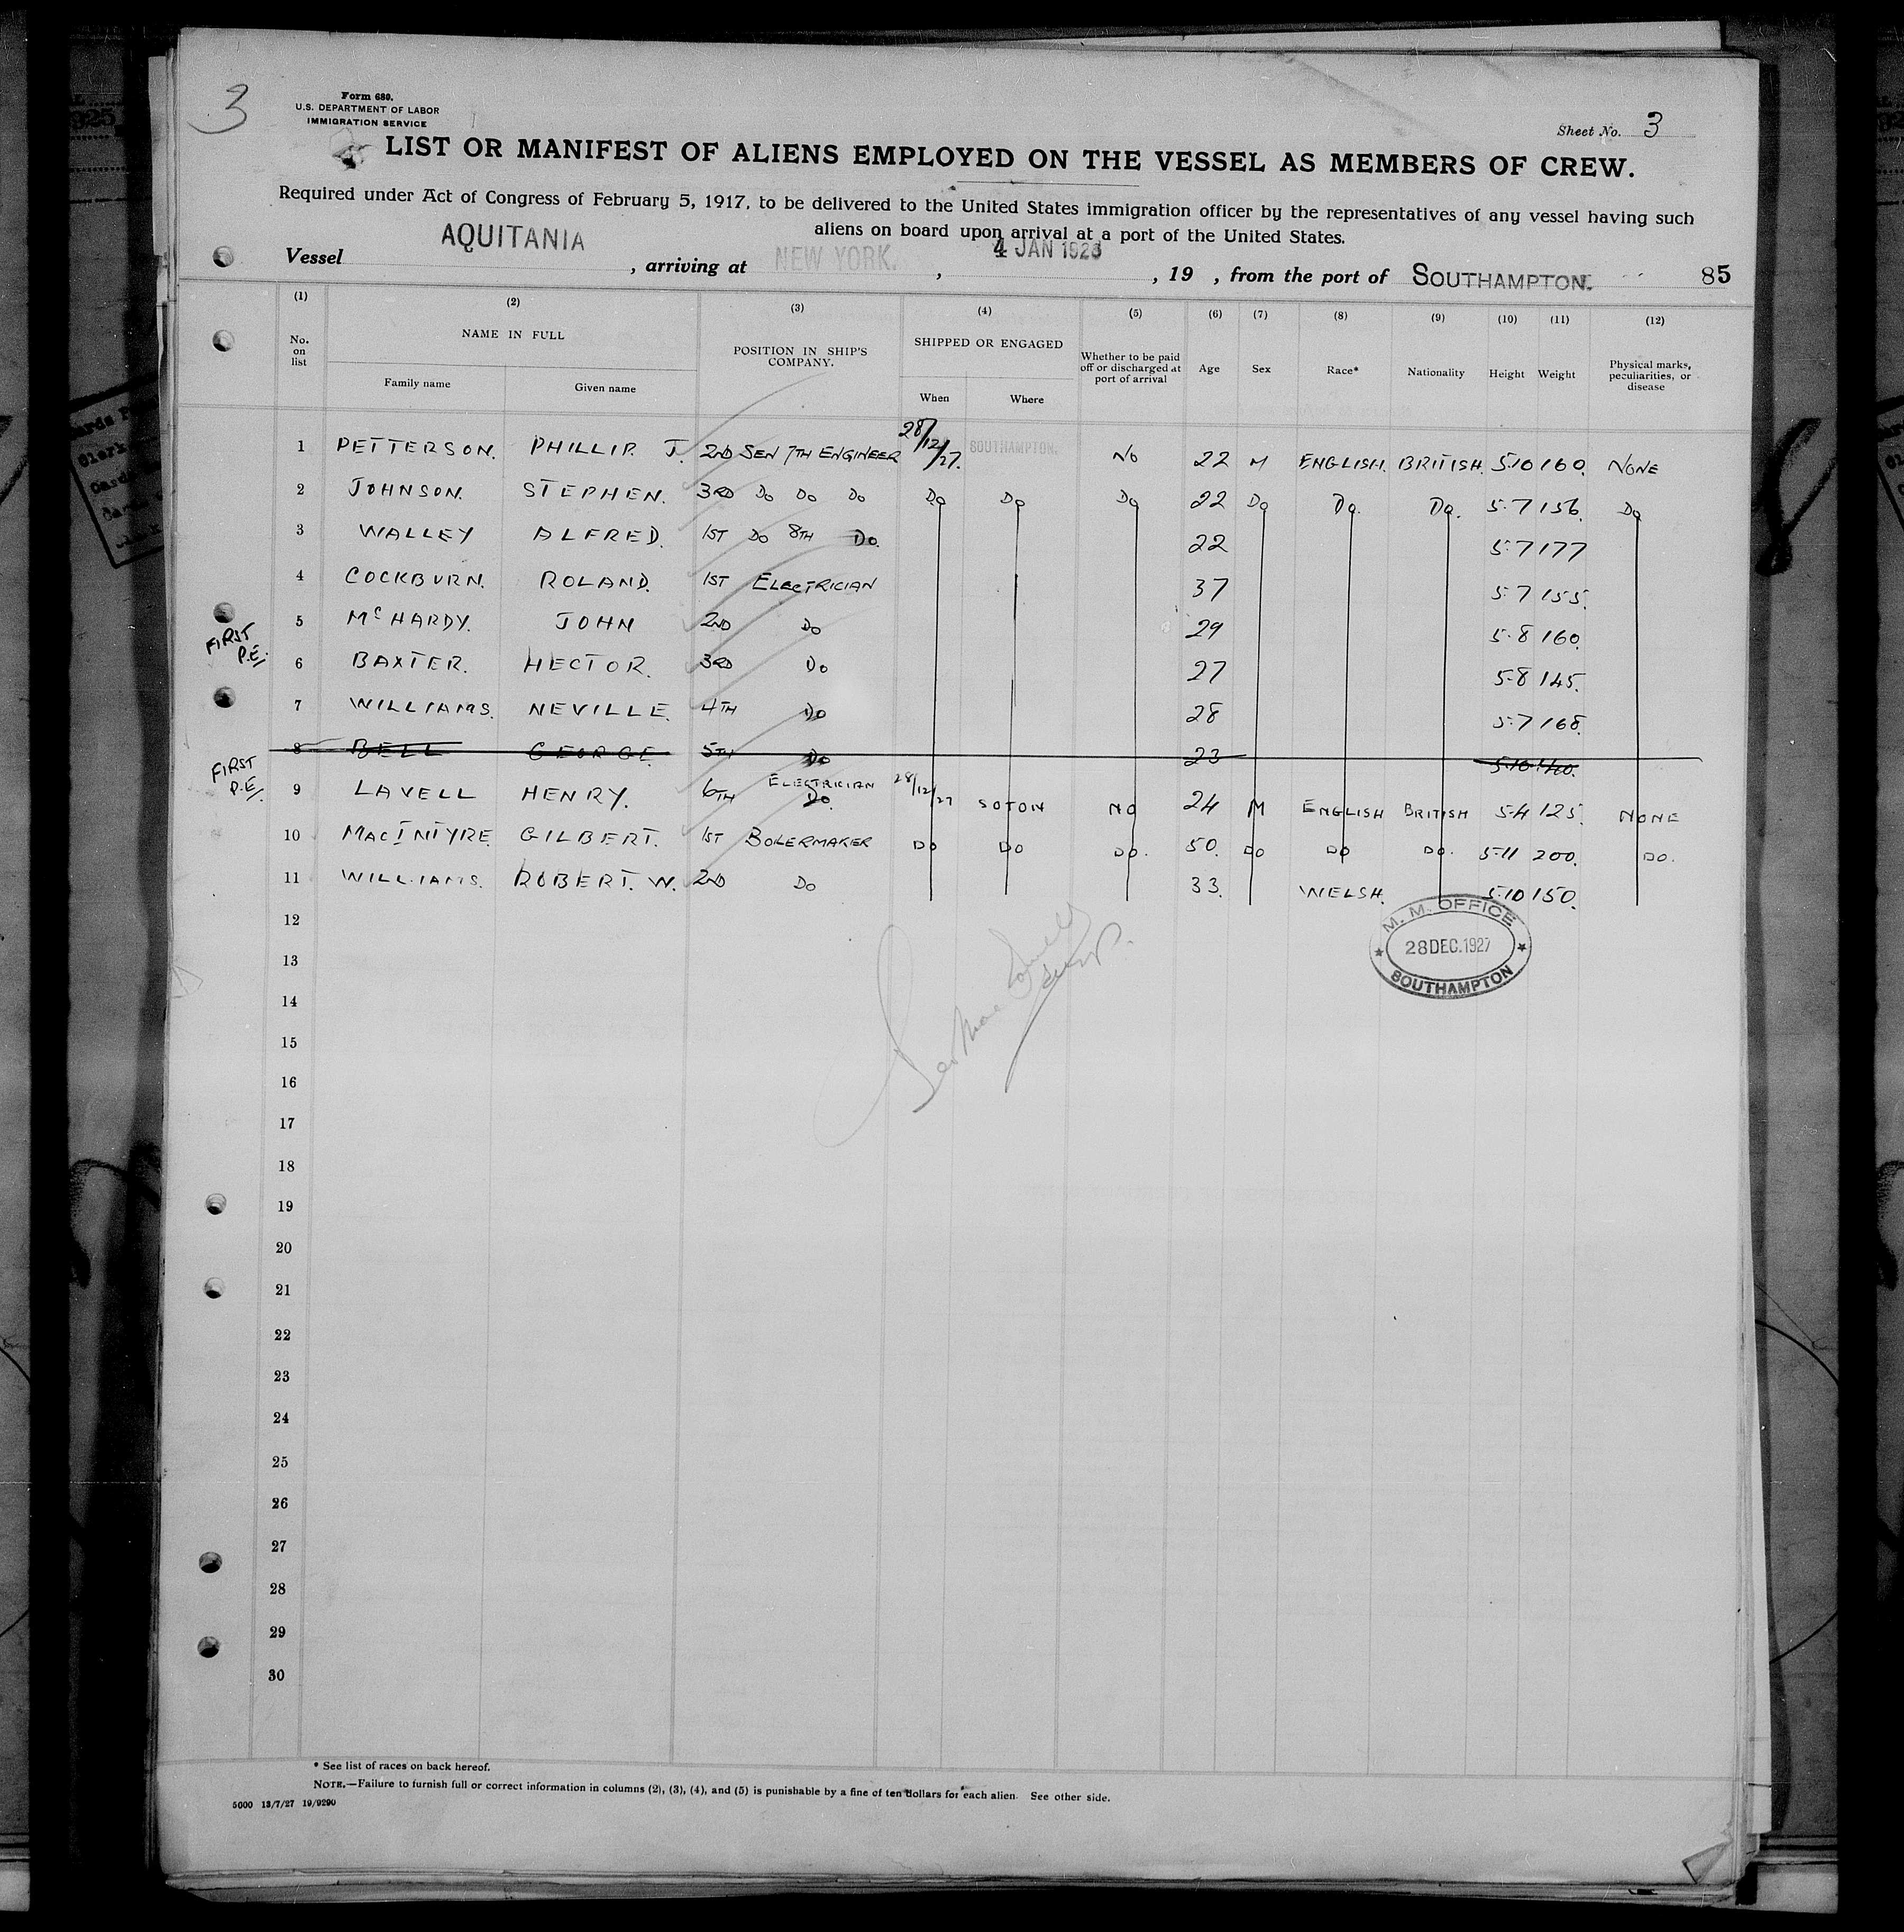 3
Form 680.
U.S. DEPARTMENT OF LABOR
IMMIGRATION SERVICE
Sheet No. 3
LIST OR MANIFEST OF ALIENS EMPLOYED ON THE VESSEL AS MEMBERS OF CREW.
Required under Act of Congress of February 5, 1917, to be delivered to the United States immigration officer by the representatives of any vessel having such
aliens on board upon arrival at a port of the United States.
Vessel AQUITANIA , arriving at NEW YORK. , 4 JAN 1928 , 19 , from the port of SOUTHAMPTON. 85
(1) (2) (3) (4) (5) (6) (7) (8) (9) (10) (11) (12)
No. on list NAME IN FULL POSITION IN SHIP'S COMPANY. SHIPPED OR ENGAGED Whether to be paid off or discharged at port of arrival Age Sex Race* Nationality Height Weight Physical marks, peculiarities, or disease
Family name Given name When Where
1 PETTERSON. PHILLIP. J. 2ND SEN 7TH ENGINEER 28/12/27. SOUTHAMPTON. NO 22 M ENGLISH. BRITISH. 5.10 160. NONE
2 JOHNSON. STEPHEN. 3RD DO DO DO DO DO DO 22 DO DO. DO. 5.7 156. DO
3 WALLEY ALFRED. 1ST DO 8TH DO. 22 5.7 177
4 COCKBURN. ROLAND. 1ST ELECTRICIAN 37 5.7 155.
5 McHARDY. JOHN 2ND DO 29 5.8 160.
FIRST P.E/.
6 BAXTER. HECTOR. 3RD DO 27 5.8 145.
7 WILLIAMS. NEVILLE. 4TH DO 28 5.7 168.
8 BELL GEORGE. 5TH DO 23 5.10 140.
FIRST P.E/.
9 LAVELL HENRY. 6TH ELECTRICIAN DO. 28/12/27 SOTON NO 24 M ENGLISH BRITISH 5.4 125. NONE
10 MACINTYRE. GILBERT. 1ST BOILERMAKER DO DO DO. 50. DO DO DO. 5.11 200. DO.
11 WILLIAMS. ROBERT. W. 2ND DO 33. WELSH. 5.10 150.
12
M. M. OFFICE
28 DEC. 1927
SOUTHAMPTON
13
14
15
16
17
18
19
20
21
22
23
24
25
26
27
28
29
30
* See list of races on back hereof.
NOTE.—Failure to furnish full or correct information in columns (2), (3), (4), and (5) is punishable by a fine of ten dollars for each alien. See other side.
5000 13/7/27 19/9290